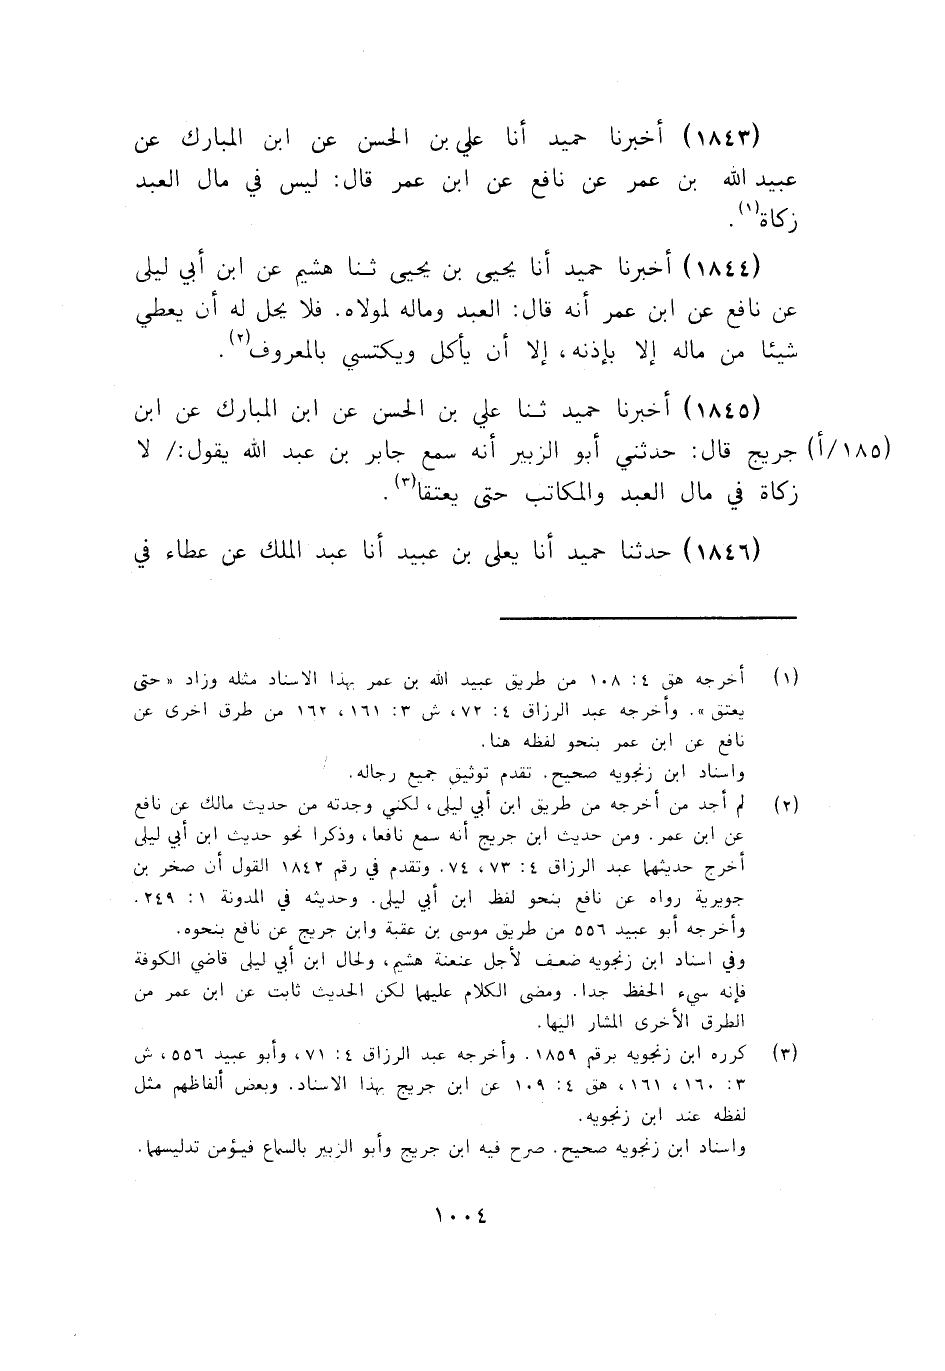 (١٨٤٣) أخبرنا حميد أنا علي بن الحسن عن ابن المبارك عن
عبيد الله بن عمر عن نافع عن ابن عمر قال: ليس في مال العبد
زكاة(١).
(١٨٤٤) أخبرنا حميد أنا يحيى بن يحيى ثنا هشيم عن ابن أبي ليلى
عن نافع عن ابن عمر أنه قال: العبد وماله لمولاه. فلا يحل له أن يعطي
شيئا من ماله إلا بإذنه، إلا أن يأكل ويكتسي بالمعروف(٢).
(١٨٤٥) أخبرنا حميد ثنا علي بن الحسن عن ابن المبارك عن ابن
(١٨٥/أ) جريج قال: حدثني أبو الزبير أنه سمع جابر بن عبد الله يقول:/ لا
زكاة في مال العبد والمكاتب حتى يعتقا(٣).
(١٨٤٦) حدثنا حميد أنا يعلى بن عبيد أنا عبد الملك عن عطاء في
(١) أخرجه هق ٤: ١٠٨ من طريق عبيد الله بن عمر بهذا الاسناد مثله وزاد «حتى
يعتق». وأخرجه عبد الرزاق ٤: ٧٢، ش ٣: ١٦١، ١٦٢ من طرق اخرى عن
نافع عن ابن عمر بنحو لفظه هنا.
واسناد ابن زنجويه صحيح. تقدم توثيق جميع رجاله.
(٢) لم أجد من أخرجه من طريق ابن أبي ليلى، لكني وجدته من حديث مالك عن نافع
عن ابن عمر. ومن حديث ابن جريج أنه سمع نافعا، وذكرا نحو حديث ابن أبي ليلى
أخرج حديثهما عبد الرزاق ٤: ٧٣، ٧٤. وتقدم في رقم ١٨٤٢ القول أن صخر بن
جويرية رواه عن نافع بنحو لفظ ابن أبي ليلى. وحديثه في المدونة ١: ٢٤٩.
وأخرجه أبو عبيد ٥٥٦ من طريق موسى بن عقبة وابن جريج عن نافع بنحوه.
وفي اسناد ابن زنجويه ضعف لأجل عنعنة هشيم، ولحال ابن أبي ليلى قاضي الكوفة
فإنه سيء الحفظ جدا. ومضى الكلام عليهما لكن الحديث ثابت عن ابن عمر من
الطرق الأخرى المشار اليها.
(٣) كرره ابن زنجويه برقم ١٨٥٩. وأخرجه عبد الرزاق ٤: ٧١، وأبو عبيد ٥٥٦، ش
٣: ١٦٠، ١٦١، هق ٤: ١٠٩ عن ابن جريج بهذا الاسناد. وبعض ألفاظهم مثل
لفظه عند ابن زنجويه.
واسناد ابن زنجويه صحيح. صرح فيه ابن جريج وأبو الزبير بالسماع فيؤمن تدليسهما.
١٠٠٤